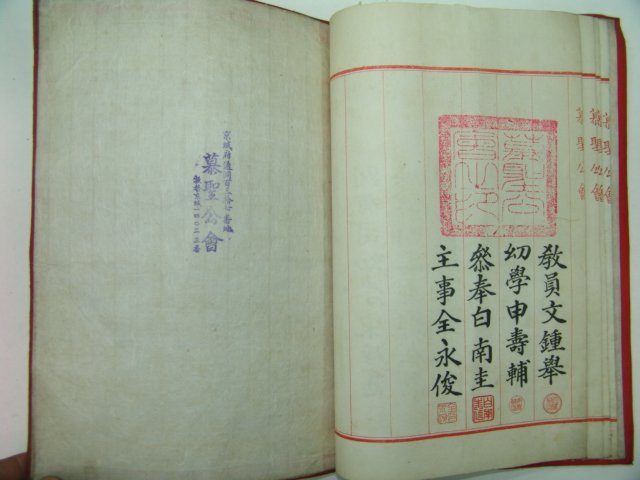 慕聖公會
教員文鍾舉
幼學申壽輔
叅奉白南圭
主事全永俊
慕聖公會印
京城府
慕聖公會